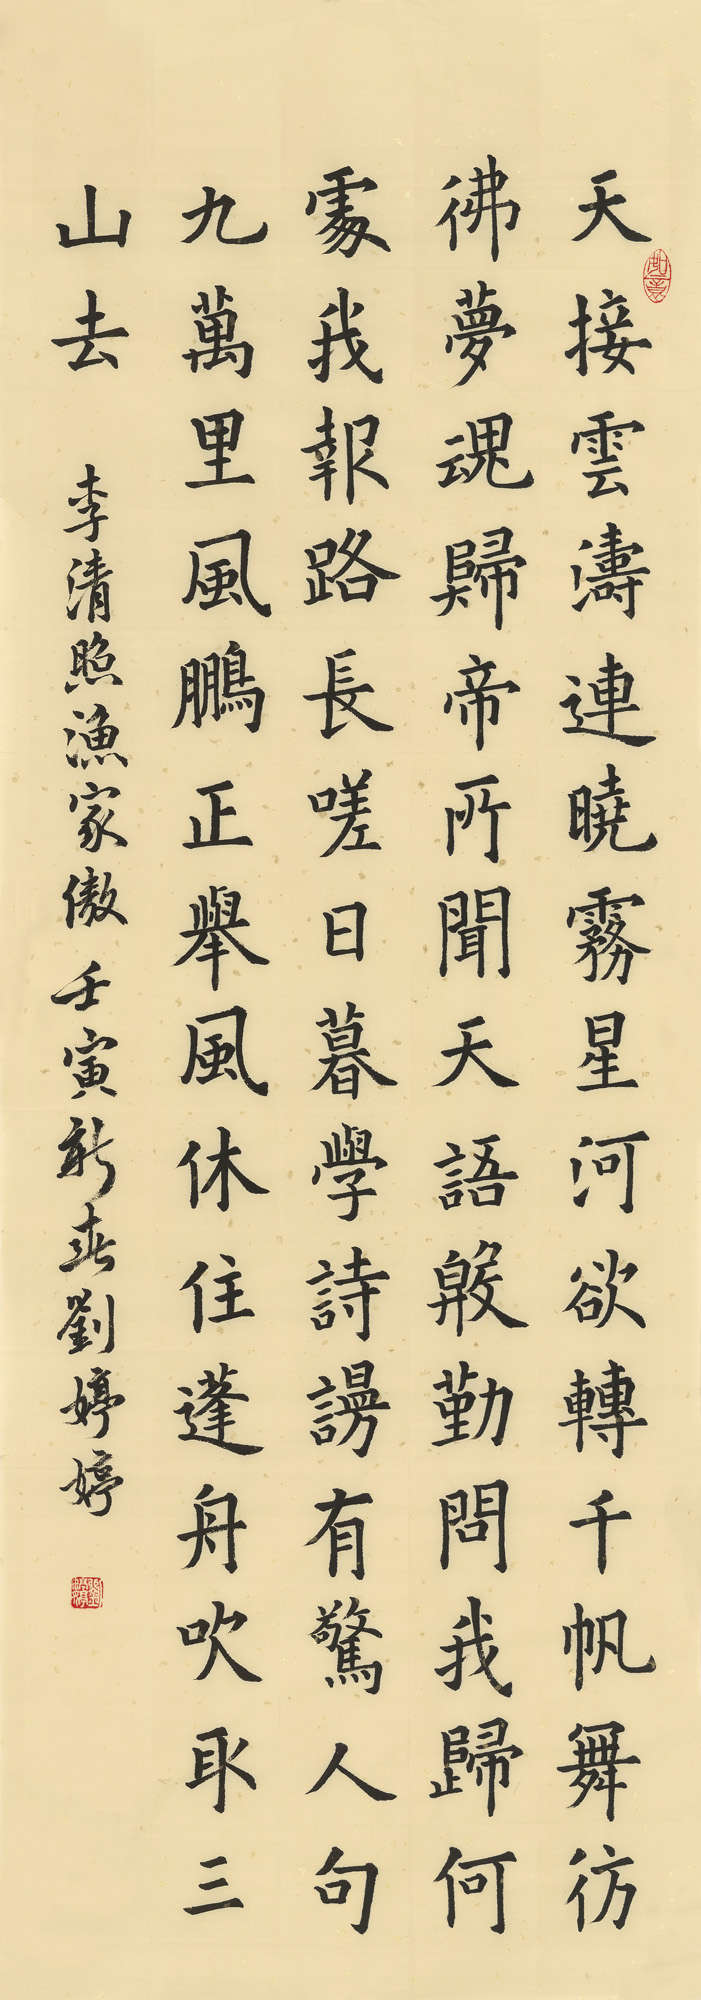 天接雲濤連曉霧星河欲轉千帆舞彷
彿夢魂歸帝所聞天語殷勤問我歸何
處我報路長嗟日暮學詩謾有驚人句
九萬里風鵬正舉風休住蓬舟吹取三
山去
李清照漁家傲壬寅新春劉婷婷
如意